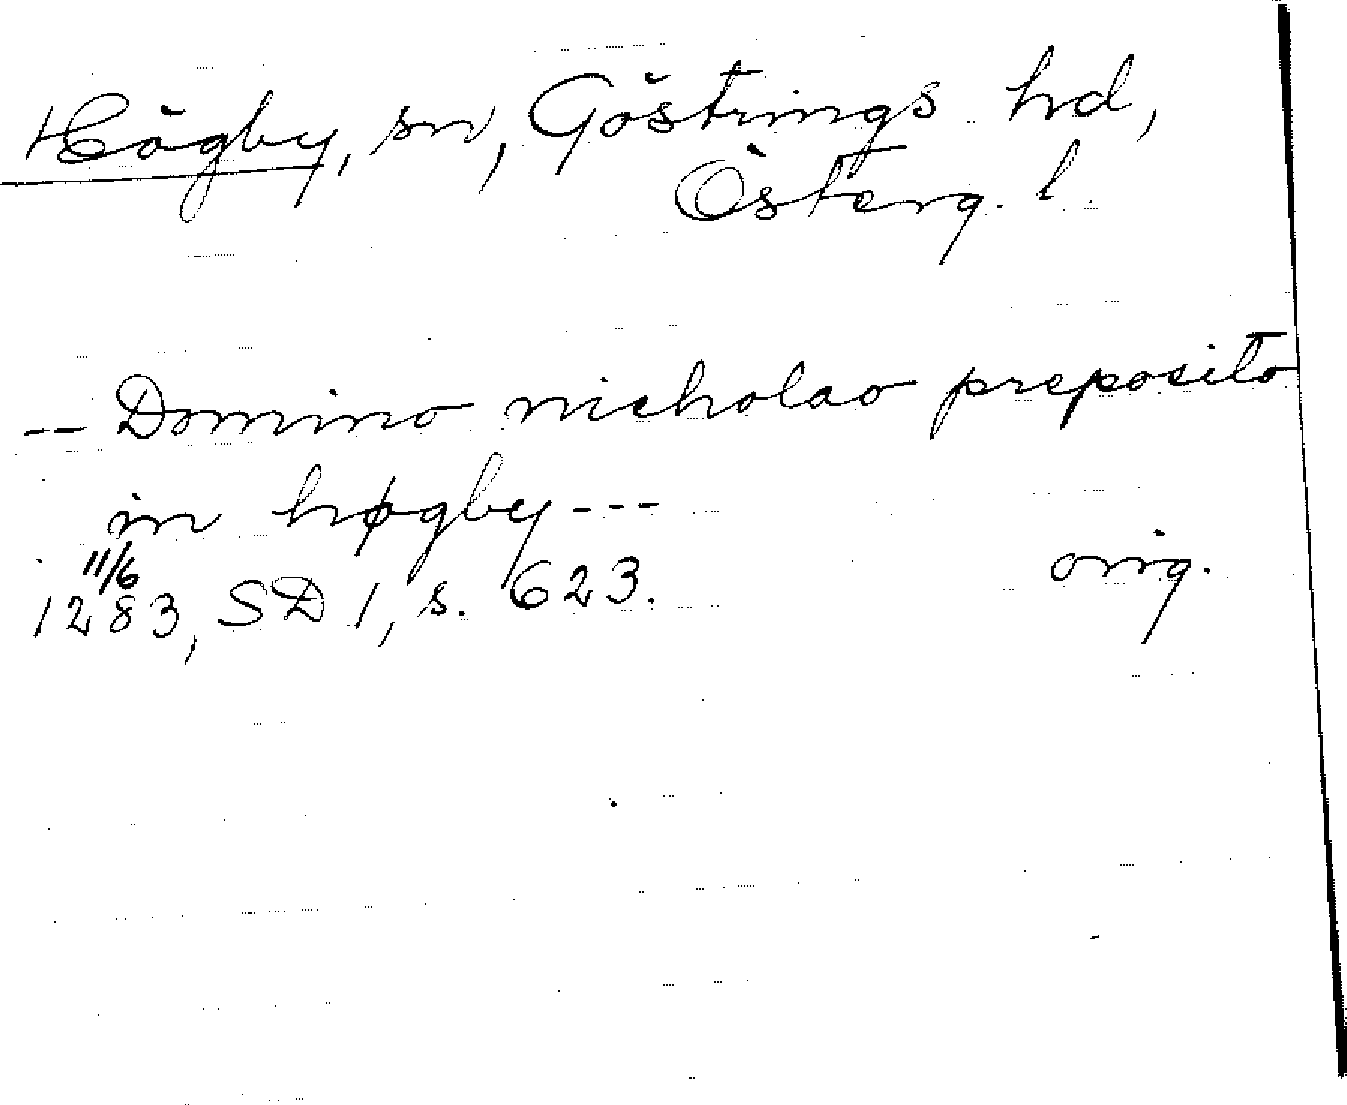 Högby, sn, Göstrings hd,
Österg. l.
-- Domino nicholao preposito
in høgby ---
11/6
1283, SD 1, s. 623. orig.